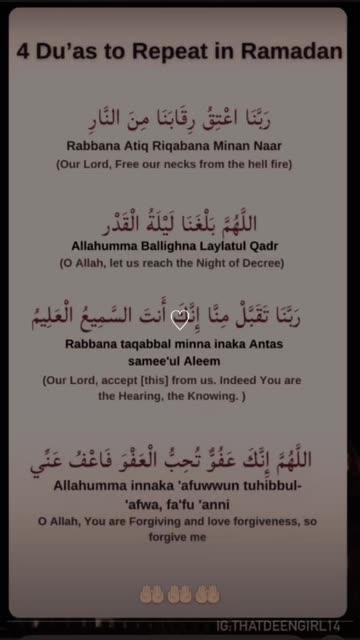 4 Du’as to Repeat in Ramadan
رَبَّنَا اعْتِقُ رِقَابَنَا مِنَ النَّارِ
Rabbana Atiq Riqabana Minan Naar
(Our Lord, Free our necks from the hell fire)
اللَّهُمَّ بَلِّغْنَا لَيْلَةُ الْقَدْر
Allahumma Ballighna Laylatul Qadr
(O Allah, let us reach the Night of Decree)
رَبَّنَا تَقَبَّلْ مِنَّا إِنَّكَ أَنتَ السَّمِيعُ الْعَلِيمُ
Rabbana taqabbal minna inaka Antas
samee'ul Aleem
(Our Lord, accept [this] from us. Indeed You are
the Hearing, the Knowing. )
اللَّهُمَّ إِنَّكَ عَفُوٌّ تُحِبُّ الْعَفْوَ فَاعْفُ عَنِّي
Allahumma innaka 'afuwwun tuhibbul-
'afwa, fa'fu 'anni
O Allah, You are Forgiving and love forgiveness, so
forgive me
IG:THATDEENGIRL14